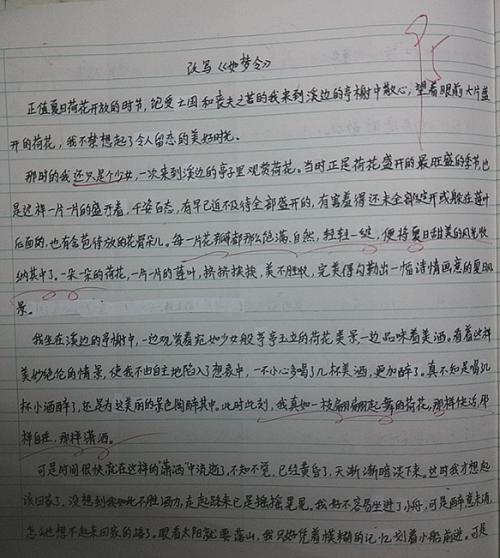 改写《如梦令》
正值夏日荷花开放的时节,饱受亡国和丧夫之苦的我来到溪边的亭榭中散心,望着眼前大片盛
开的荷花,我不禁想起了令人留恋的美好时光。
那时的我还只是个少女,一次来到溪边的亭子里观赏荷花。当时正是荷花盛开的最旺盛的季节,也
是这样一片一片的盛开着,千姿百态,有早已迫不及待全部盛开的,有害羞得还未全部绽开或躲在荷叶
后面的,也有含苞待放的花骨朵儿。每一片花瓣都那么饱满、自然,轻轻一绽,便将夏日甜美的风光收
纳其中了,一朵一朵的荷花,一片一片的荷叶,挤挤挨挨,美不胜收,完美得勾勒出一幅诗情画意的夏日
景。
我坐在溪边的亭榭中,一边观赏着宛如少女般亭亭玉立的荷花美景一边品味着美酒。看着这样
美妙绝伦的情景,使我不由自主地陷入了想象中,一不小心多喝了几杯美酒,更加醉了。真不知是喝几
杯小酒醉了,还是为这美丽的景色陶醉其中。此时此刻,我真如一枝翩翩起舞的荷花,那样快活,那
样自在,那样潇洒。
可是时间很快就在这样的“潇洒”中流逝了,不知不觉,已经黄昏了,天渐渐暗淡下来。这时我才想起
该回家了,没想到不胜酒力,走起路来已是摇摇晃晃。我好不容易坐进了小舟,可是醉意未消,
怎么也想不起来回家的路了。眼看太阳就要落山,我只好凭着模糊的记忆划着小船前进。可是